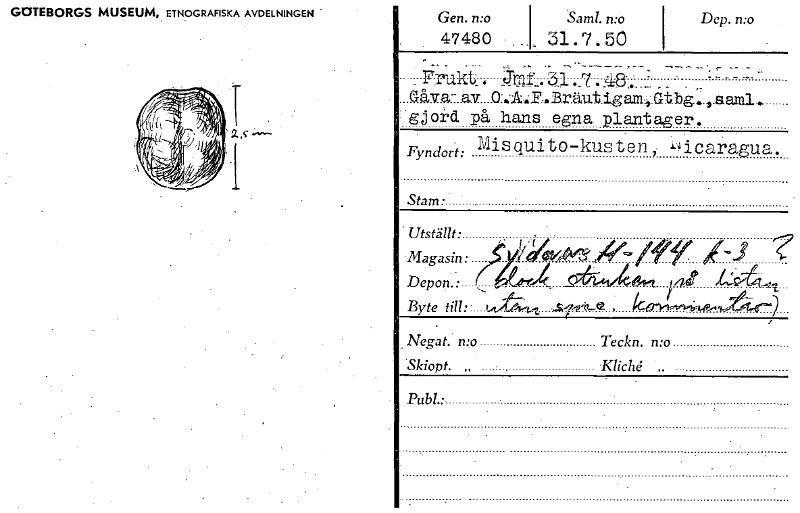 GÖTEBORGS MUSEUM, ETNOGRAFISKA AVDELNINGEN
Gen. n:o Saml. n:o Dep. n:o
47480 31.7.50
Frukt. Jmf.31.7.48.
Gåva av O.A.F.Bräutigam,Gtbg.,saml.
gjord på hans egna plantager.
Fyndort: Misquito-kusten, Nicaragua.
Stam:
Utställt:
Magasin: H-144 k-3 ?
Depon.: (dock struken på listan
Byte till: utan kommentar)
Negat. n:o Teckn. n:o
Skiopt. „ Kliché „
Publ.:
2,5 cm